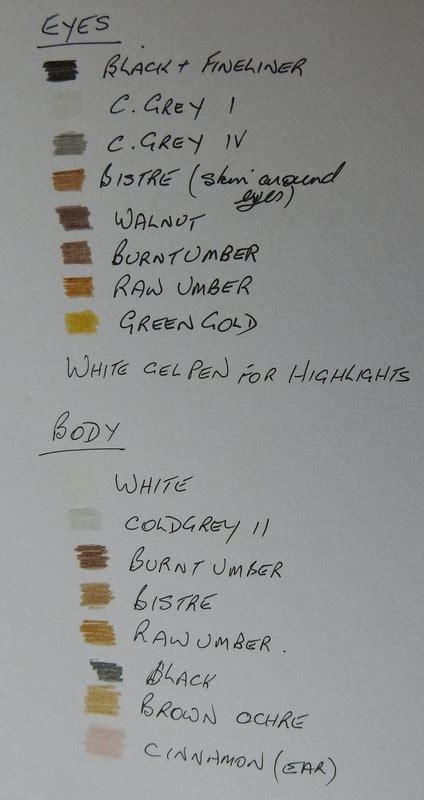 EYES
BLACK + FINELINER
C. GREY I
C. GREY IV
BISTRE (skin around
eyes)
WALNUT
BURNT UMBER
RAW UMBER
GREEN GOLD
WHITE GEL PEN FOR HIGHLIGHTS
BODY
WHITE
COLD GREY II
BURNT UMBER
BISTRE
RAW UMBER.
BLACK
BROWN OCHRE
CINNAMON (EAR)